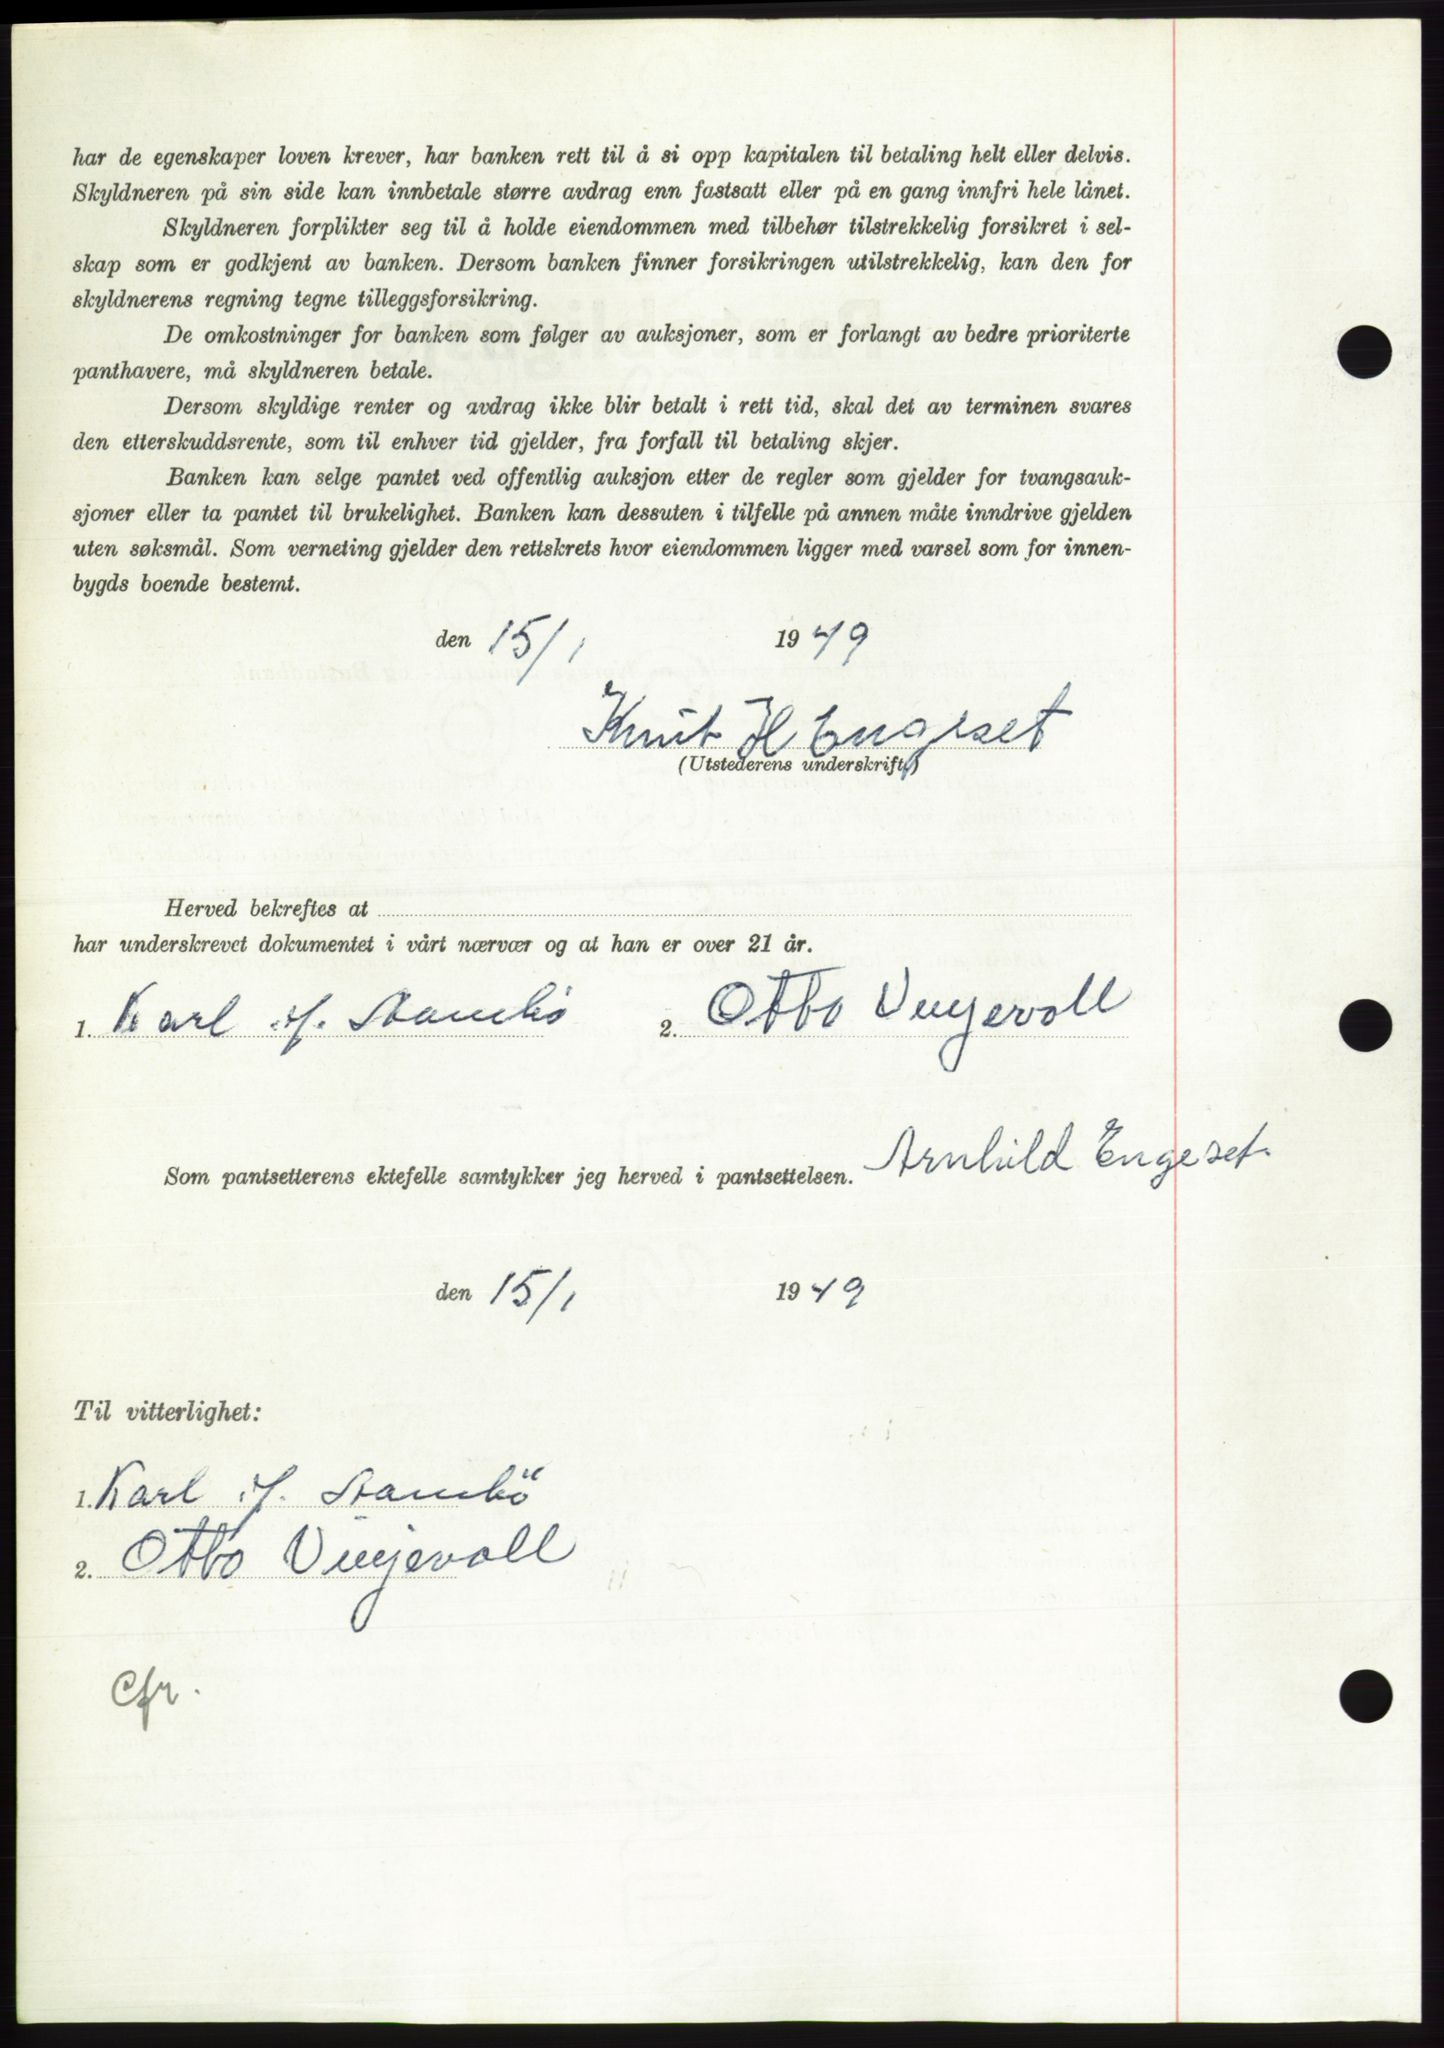 har de egenskaper loven krever, har banken rett til å si opp kapitalen til betaling helt eller delvis.
Skyldneren på sin side kan innbetale større avdrag enn fastsatt eller på en gang innfri hele lånet.
Skyldneren forplikter seg til å holde eiendommen med tilbehør tilstrekkelig forsikret i sel-
skap som er godkjent av banken. Dersom banken finner forsikringen utilstrekkelig, kan den for
skyldnerens regning tegne tilleggsforsikring.
De omkostninger for banken som følger av auksjoner, som er forlangt av bedre prioriterte
panthavere, må skyldneren betale.
Dersom skyldige renter og avdrag ikke blir betalt i rett tid, skal det av terminen svares
den etterskuddsrente, som til enhver tid gjelder, fra forfall til betaling skjer.
Banken kan selge pantet ved offentlig auksjon etter de regler som gjelder for tvangsauk-
sjoner eller ta pantet til brukelighet. Banken kan dessuten i tilfelle på annen måte inndrive gjelden
uten søksmål. Som verneting gjelder den rettskrets hvor eiendommen ligger med varsel som for innen-
bygds boende bestemt.
den 15/1 1949
Knut H Engeset
(Utstederens underskrift.)
Herved bekreftes at
har underskrevet dokumentet i vårt nærvær og at han er over 21 år.
1. Karl 2. Otto Vinjevoll
Arnhild Engeset.
Som pantsetterens ektefelle samtykker jeg herved i pantsettelsen.
den 15/1 1949
Til vitterlighet:
1. Karl
2. Otto Vinjevoll
Cfr.